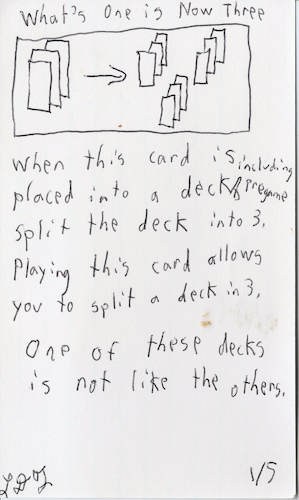 What's One is Now Three
When this card is including
placed into a deck pregame
split the deck into 3.
Playing this card allows
you to split a deck in 3.
One of these decks
is not like the others.
1/5